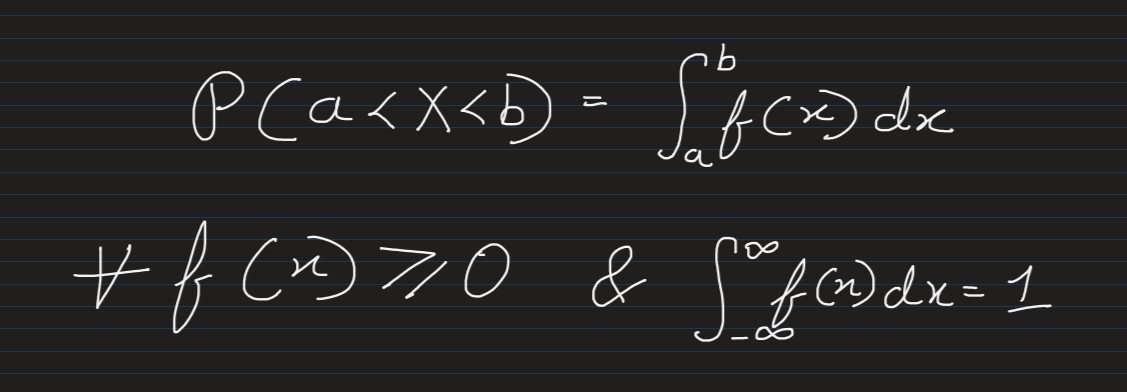 P(a<X<b) = ∫_a^b f(x) dx
∀ f(x) ⩾ 0 & ∫_{-∞}^{∞} f(x) dx = 1